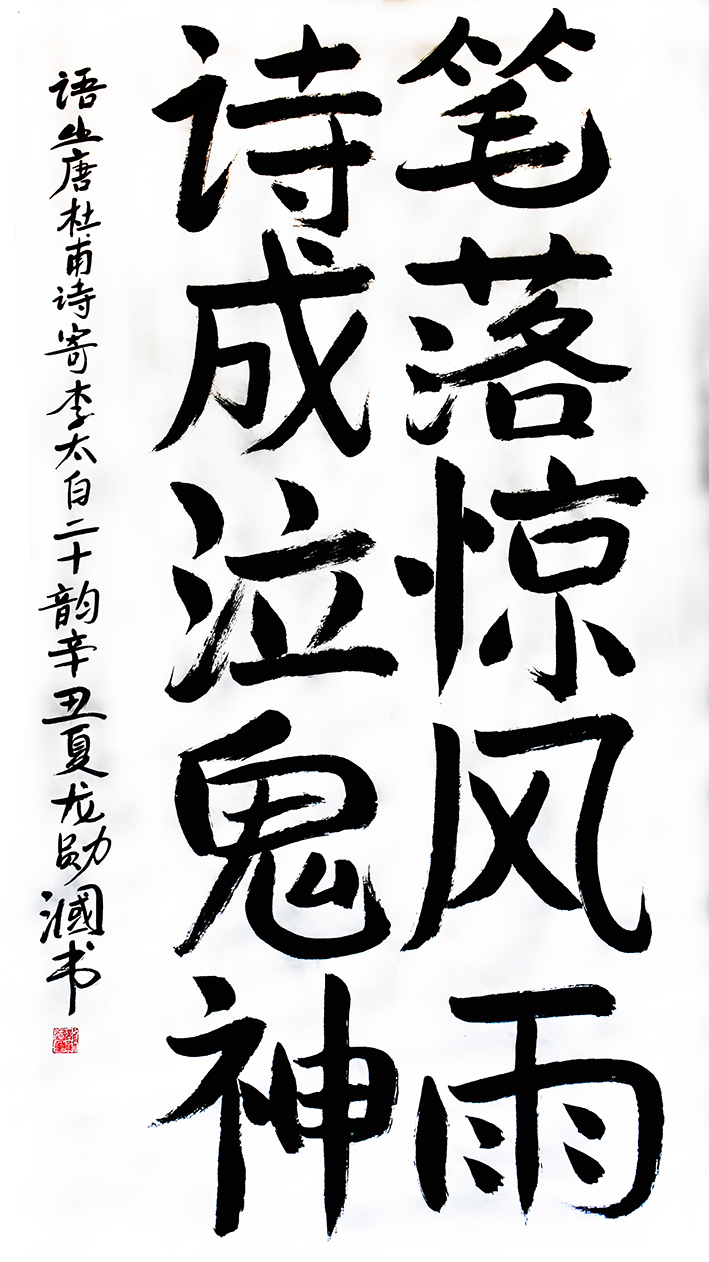 笔落惊风雨
诗成泣鬼神
语出唐杜甫诗寄李太白二十韵辛丑夏龙勋国书